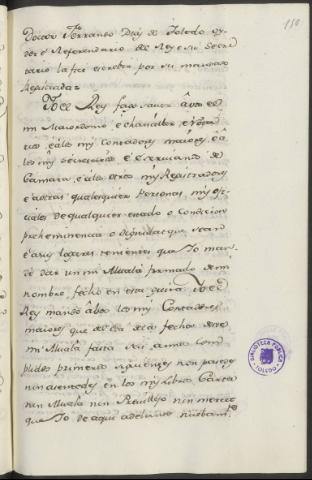 150
Doctor Fernando Diaz de Toledo oy-
dor e Referendario del Rey e su Secre-
tario la fice escrebir por su mandado
Registrada =
Yo el Rey fago saver a vos el
mi Maiordomo, e chanciller, e
e a los mis Contadores maiores, e a
los mis Secretarios e Escrivanos de
Camara, e a los otros mis Registradores
e a otras qualesquier Personas, mis ofi-
ciales de qualquier estado o Condicion
preheminencia o Dignidad que sean
e a sus logares tenientes que Yo man-
dé dar un mi Alvalá firmado de mi
nombre, fecho en esta guisa Yo el
Rey mando a vos los mis Contadores
maiores que de la de la fecha deste
mi Alvala fasta seis annos com-
plidos primeros siguientes non paredes
nin asentedes en los mis Libros Carta
nin Alvala nin Previllejo nin merced
que Yo de aqui adelante
BIBLIOTECA PUBLICA
TOLEDO